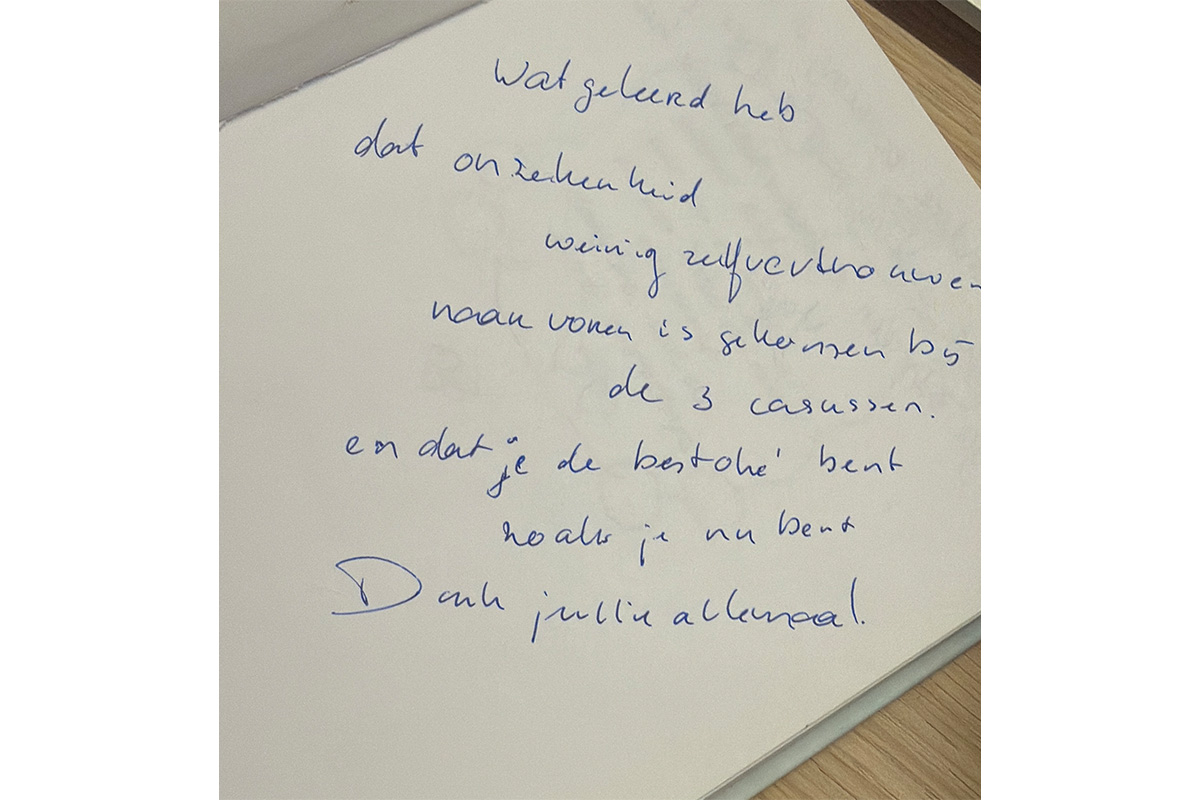 Wat geleerd heb
dat onzekerheid
weinig zelfvertrouwen
naar voren is gekomen bij
de 3 casussen.
en dat je de bent
zoals je nu bent
Dank jullie allemaal.